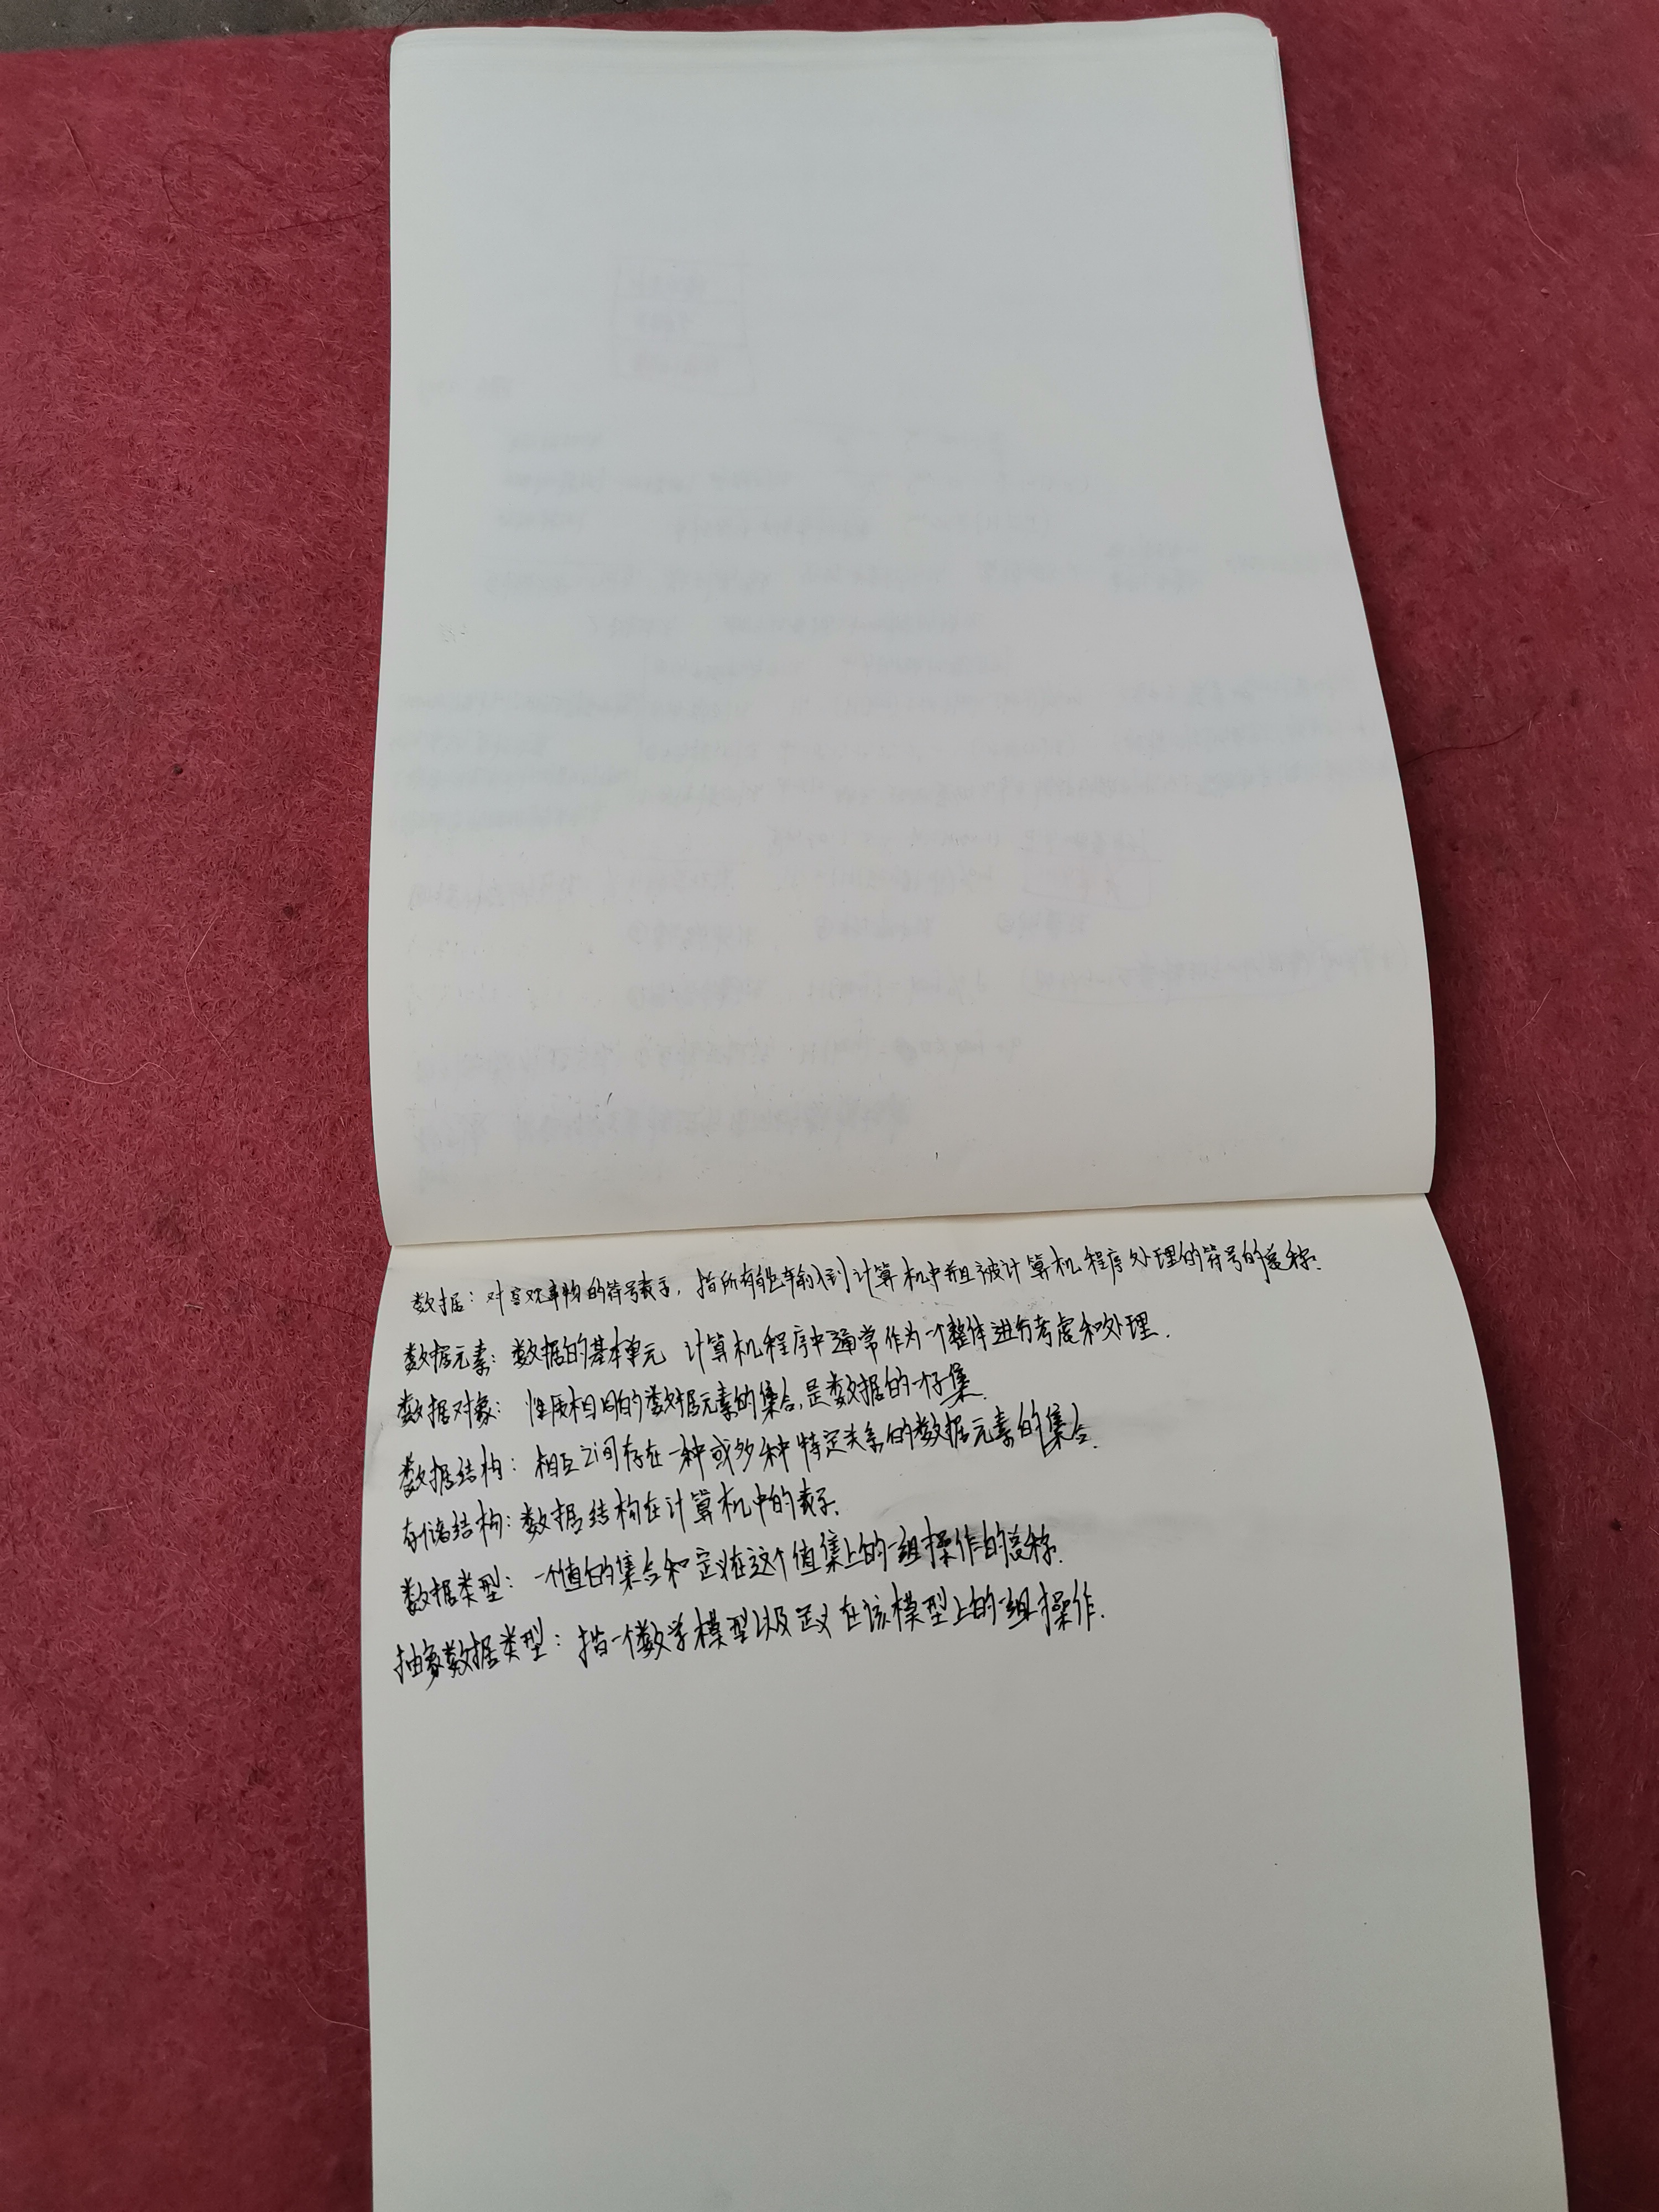 数据：对客观事物的符号表示，指所有能车俞入到计算机中并且被计算机程序处理的符号的总称.
数据元素：数据的基本单元 计算机程序中通常作为一个整体进行考虑和处理.
数据对象：性质相同的数据元素的集合，是数据的一个子集.
数据结构：相互之间存在一种或多种特定关系的数据元素的集合.
存储结构：数据结构在计算机中的表示.
数据类型：一个值的集合和定义在这个值集上的一组操作的总称.
抽象数据类型：指一个数学模型以及定义在该模型上的一组操作.